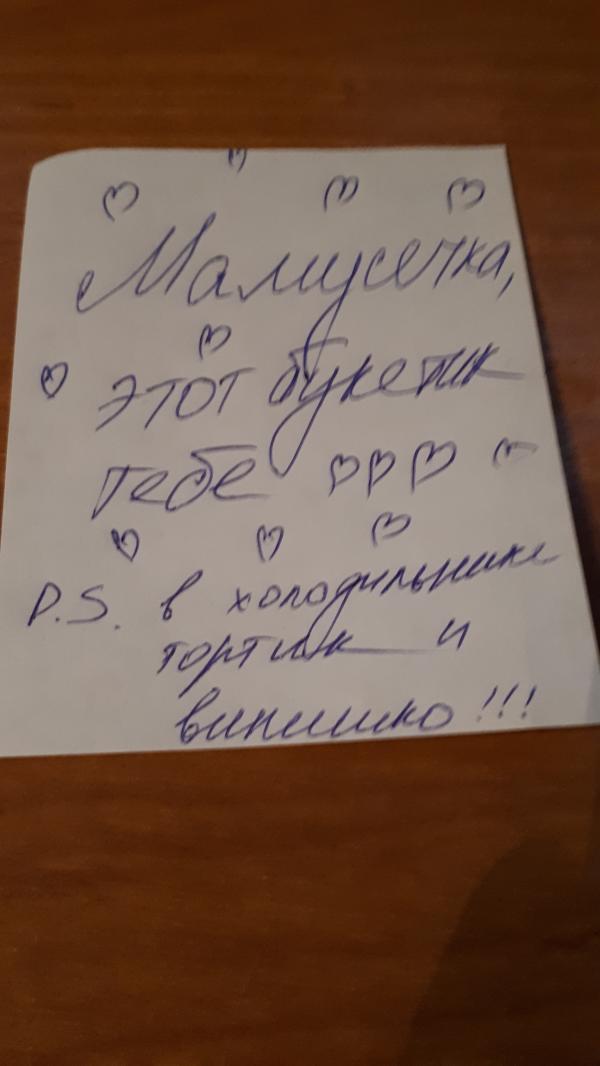 Мамусечка,
этот букетик
тебе
P.S. в холодильнике
тортик и
винишко!!!